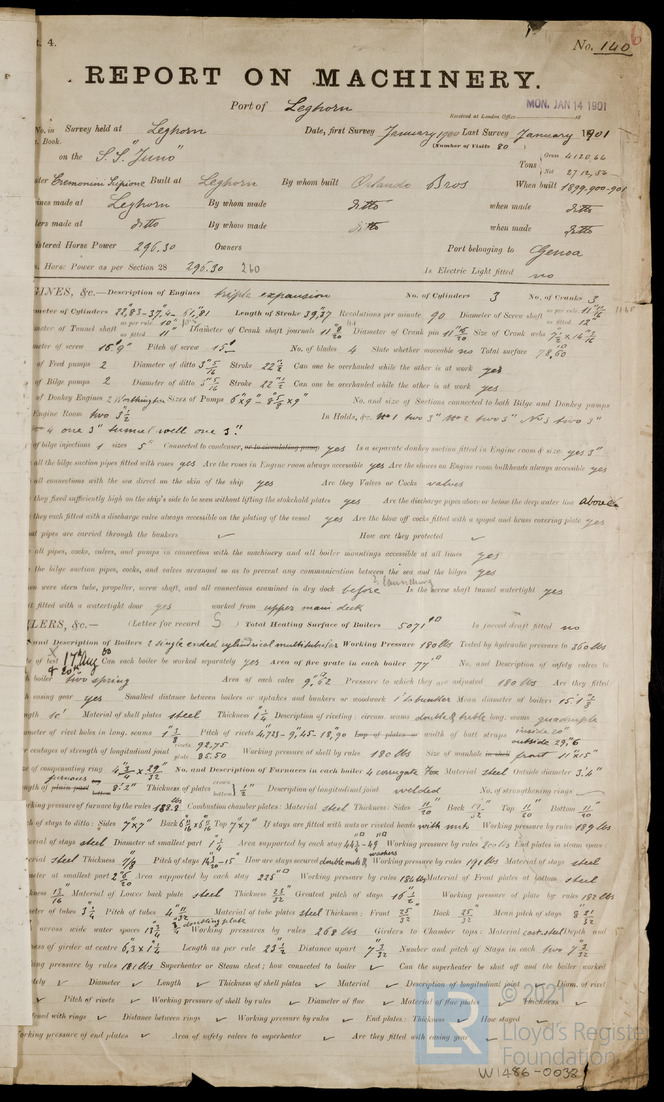 t. 4.
No. 140
REPORT ON MACHINERY.
Port of Leghorn
Received at London Office
MON. JAN 14 1901
No. in Survey held at Leghorn Date, first Survey January 1900 Last Survey January 1901
Book.
(Number of Visits 80
on the S.S. "Juno"
Tons Gross 4120,66
Net 2712,56
ster Cremonini Scipione Built at Leghorn By whom built Orlando Bros When built 1899-900-901
ines made at Leghorn By whom made ditto when made ditto
lers made at ditto By whom made ditto when made ditto
istered Horse Power 296.30 Owners Port belonging to Genoa
. Horse Power as per Section 28 296.30 260 Is Electric Light fitted no
GINES, &c.—Description of Engines triple expansion No. of Cylinders 3 No. of Cranks 3
meter of Cylinders Length of Stroke 39,37 Revolutions per minute 90 Diameter of Screw shaft as per rule as fitted 12"
meter of Tunnel shaft as per rule 10" as fitted 11" Diameter of Crank shaft journals Diameter of Crank pin Size of Crank webs
meter of screw Pitch of screw 15' No. of blades 4 State whether moveable no Total surface 78,60
of Feed pumps 2 Diameter of ditto 3 5/16 Stroke 22 1/2 Can one be overhauled while the other is at work yes
of Bilge pumps 2 Diameter of ditto 3 5/16 Stroke 22 1/2 Can one be overhauled while the other is at work yes
of Donkey Engines 2 Worthington Sizes of Pumps No. and size of Suctions connected to both Bilge and Donkey pumps
Engine Room two 3 1/2 In Holds, &c. No 1 two 3" No 2 two 3" No 3 two 3"
4 one 3" tunnel well one 3"
of bilge injections 1 sizes 5" Connected to condenser, or to circulating pump yes Is a separate donkey suction fitted in Engine room & size yes 3"
all the bilge suction pipes fitted with roses yes Are the roses in Engine room always accessible yes Are the sluices on Engine room bulkheads always accessible yes
all connections with the sea direct on the skin of the ship yes Are they Valves or Cocks valves
they fixed sufficiently high on the ship's side to be seen without lifting the stokehold plates yes Are the discharge pipes above or below the deep water line above
they each fitted with a discharge valve always accessible on the plating of the vessel yes Are the blow off cocks fitted with a spigot and brass covering plate yes
at pipes are carried through the bunkers ✓ How are they protected ✓
all pipes, cocks, valves, and pumps in connection with the machinery and all boiler mountings accessible at all times yes
the bilge suction pipes, cocks, and valves arranged so as to prevent any communication between the sea and the bilges yes
en were stern tube, propeller, screw shaft, and all connections examined in dry dock before launching Is the screw shaft tunnel watertight yes
it fitted with a watertight door yes worked from upper main deck
LERS, &c.— (Letter for record S ) Total Heating Surface of Boilers 5071 Is forced draft fitted no
and Description of Boilers 2 single ended cylindrical multitubular Working Pressure 180 lbs Tested by hydraulic pressure to 360 lbs
te of test 17th Aug 00 Can each boiler be worked separately yes Area of fire grate in each boiler 77 No. and Description of safety valves to
& 20th
boiler two spring Area of each valve 9,62 Pressure to which they are adjusted 180 lbs Are they fitted
easing gear yes Smallest distance between boilers or uptakes and bunkers or woodwork Mean diameter of boilers
ngth Material of shell plates steel Thickness 1 1/4 Description of riveting: circum. seams double & treble long. seams quadruple
meter of rivet holes in long. seams 1 3/8 Pitch of rivets 4,723 - 9,45 - 18,90 Lap of plates or width of butt straps inside 20" outside 29,"6
er centages of strength of longitudinal joint rivets 92.75 plate 85.50 Working pressure of shell by rules 180 lbs Size of manhole in shell front 11"x15"
ze of compensating ring No. and Description of Furnaces in each boiler 4 corrugate Fox Material steel Outside diameter 3.'4"
ngth of plain part furnaces 8'.2" Thickness of plates crown bottom 1/2" Description of longitudinal joint welded No. of strengthening rings ✓
orking pressure of furnace by the rules 188.8 lbs Combustion chamber plates: Material steel Thickness: Sides 11/20 Back Top 11/20 Bottom 11/20
ch of stays to ditto: Sides 7"x7" Back Top 7"x7" If stays are fitted with nuts or riveted heads with nuts Working pressure by rules 189 lbs
erial of stays steel Diameter at smallest part 1 1/4 Area supported by each stay Working pressure by rules 200 lbs End plates in steam space:
erial steel Thickness 7/8 Pitch of stays How are stays secured double nuts & washers Working pressure by rules 191 lbs Material of stays steel
meter at smallest part Area supported by each stay 225 Working pressure by rules 184 lbs Material of Front plates at bottom steel
kness 13/16 Material of Lower back plate steel Thickness 23/32 Greatest pitch of stays 16 1/2 Working pressure of plate by rules 182 lbs
meter of tubes 3 1/4 Pitch of tubes Material of tube plates steel Thickness: Front 25/32 Back 25/32 Mean pitch of stays 8 21/32
across wide water spaces doubling plate Working pressures by rules 268 lbs Girders to Chamber tops: Material cast steel Depth and
kness of girder at centre 6,3 x 1 1/4 Length as per rule 23 1/2 Distance apart 7 3/32 Number and pitch of Stays in each two 7 3/32
king pressure by rules 181 lbs Superheater or Steam chest; how connected to boiler ✓ Can the superheater be shut off and the boiler worked
tely ✓ Diameter ✓ Length ✓ Thickness of shell plates ✓ Material ✓ Description of longitudinal joint ✓ Diam. of rivet
✓ Pitch of rivets ✓ Working pressure of shell by rules ✓ Diameter of flue ✓ Material of flue plates ✓ Thickness ✓
ened with rings ✓ Distance between rings ✓ Working pressure by rules ✓ End plates: Thickness ✓ How stayed ✓
orking pressure of end plates ✓ Area of safety valves to superheater ✓ Are they fitted with easing gear ✓
© 2021
Lloyd's Register
Foundation
W1486-0038